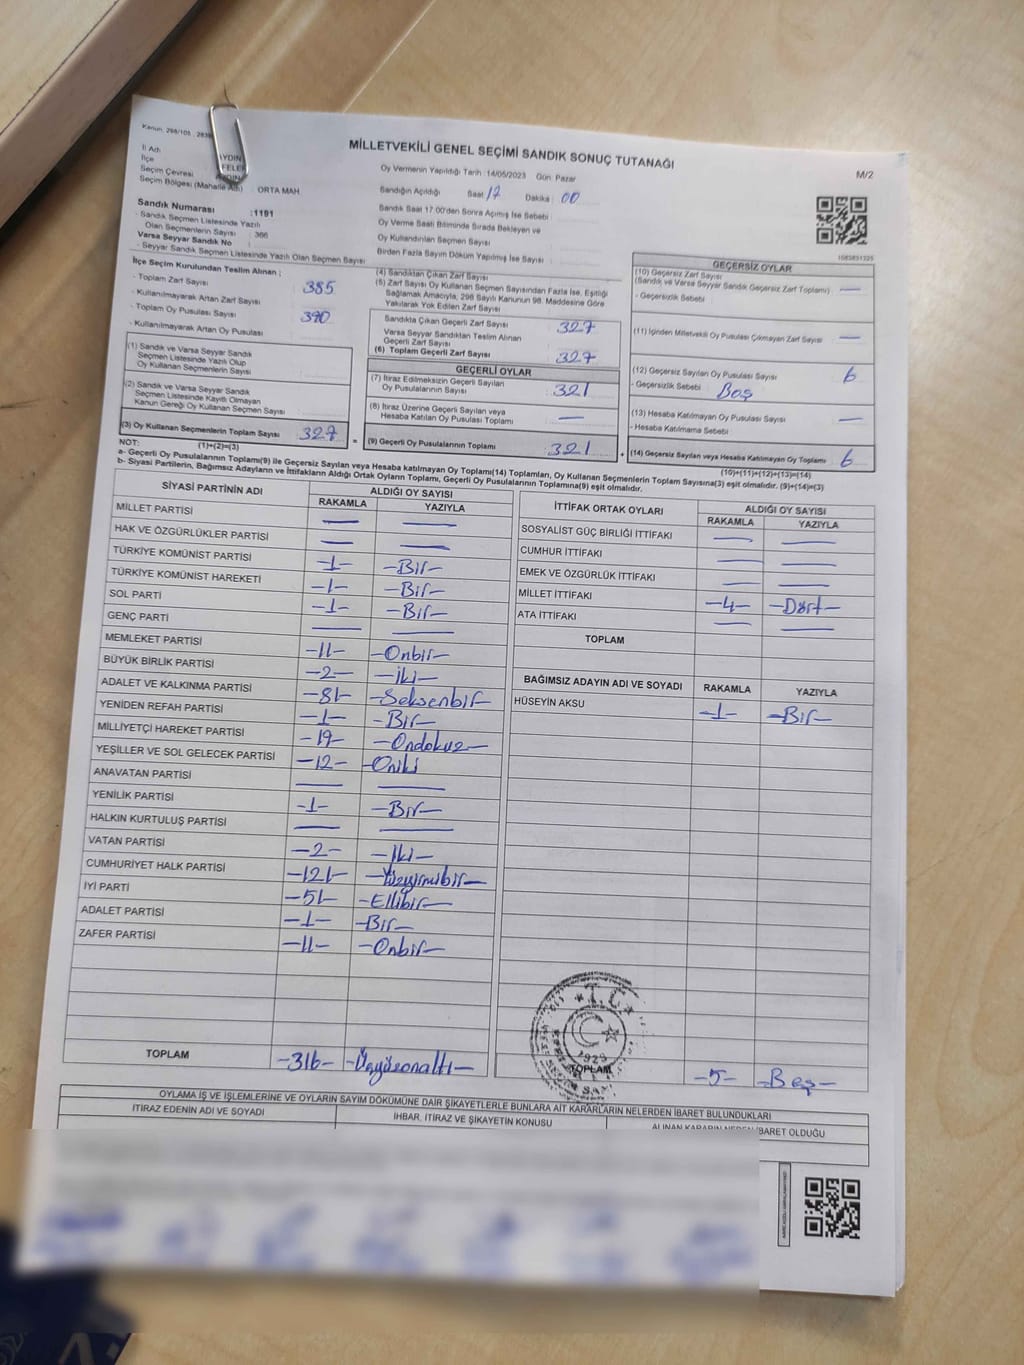 Kanun, 298/105 , 2839
MİLLETVEKİLİ GENEL SEÇİMİ SANDIK SONUÇ TUTANAĞI
M/2
İl Adı
İlçe
Seçim Çevresi
Seçim Bölgesi (Mahalle Adı) ORTA MAH.
Oy Vermenin Yapıldığı Tarih :14/05/2023 Gün: Pazar
Sandığın Açıldığı Saat 17 Dakika : 00
Sandık Numarası :1191
- Sandık Seçmen Listesinde Yazılı
Olan Seçmenlerin Sayısı : 366
Varsa Seyyar Sandık No
- Seyyar Sandık Seçmen Listesinde Yazılı Olan Seçmen Sayısı
Sandık Saat 17.00'den Sonra Açılmış İse Sebebi
Oy Verme Saati Bitiminde Sırada Bekleyen ve
Oy Kullandırılan Seçmen Sayısı
Birden Fazla Sayım Döküm Yapılmış İse Sayısı
İlçe Seçim Kurulundan Teslim Alınan :
- Toplam Zarf Sayısı 385
- Kullanılmayarak Artan Zarf Sayısı
- Toplam Oy Pusulası Sayısı 390
- Kullanılmayarak Artan Oy Pusulası
(1) Sandık ve Varsa Seyyar Sandık
Seçmen Listesinde Yazılı Olup
Oy Kullanan Seçmenlerin Sayısı
(2) Sandık ve Varsa Seyyar Sandık
Seçmen Listesinde Kayıtlı Olmayan
Kanun Gereği Oy Kullanan Seçmen Sayısı
(3) Oy Kullanan Seçmenlerin Toplam Sayısı 327
(1)+(2)=(3)
(4) Sandıktan Çıkan Zarf Sayısı
(5) Zarf Sayısı Oy Kullanan Seçmen Sayısından Fazla İse, Eşitliği
Sağlamak Amacıyla, 298 Sayılı Kanunun 98. Maddesine Göre
Yakılarak Yok Edilen Zarf Sayısı
Sandıkta Çıkan Geçerli Zarf Sayısı 327
Varsa Seyyar Sandıktan Teslim Alınan
Geçerli Zarf Sayısı
(6) Toplam Geçerli Zarf Sayısı 327
GEÇERLİ OYLAR
(7) İtiraz Edilmeksizin Geçerli Sayılan
Oy Pusulalarının Sayısı 321
(8) İtiraz Üzerine Geçerli Sayılan veya
Hesaba Katılan Oy Pusulası Toplamı —
= (9) Geçerli Oy Pusulalarının Toplamı 321 +
1583831325
GEÇERSİZ OYLAR
(10) Geçersiz Zarf Sayısı
(Sandık ve Varsa Seyyar Sandık Geçersiz Zarf Toplamı) —
- Geçersizlik Sebebi
(11) İçinden Milletvekili Oy Pusulası Çıkmayan Zarf Sayısı —
(12) Geçersiz Sayılan Oy Pusulası Sayısı 6
- Geçersizlik Sebebi : Boş
(13) Hesaba Katılmayan Oy Pusulası Sayısı —
- Hesaba Katılmama Sebebi
(14) Geçersiz Sayılan veya Hesaba Katılmayan Oy Toplamı 6
(10)+(11)+(12)+(13)=(14)
NOT:
a- Geçerli Oy Pusulalarının Toplamı(9) ile Geçersiz Sayılan veya Hesaba katılmayan Oy Toplamı(14) Toplamları, Oy Kullanan Seçmenlerin Toplam Sayısına(3) eşit olmalıdır. (9)+(14)=(3)
b- Siyasi Partilerin, Bağımsız Adayların ve İttifakların Aldığı Ortak Oyların Toplamı, Geçerli Oy Pusulalarının Toplamına(9) eşit olmalıdır.
SİYASİ PARTİNİN ADI ALDIĞI OY SAYISI
RAKAMLA YAZIYLA
MİLLET PARTİSİ — —
HAK VE ÖZGÜRLÜKLER PARTİSİ — —
TÜRKİYE KOMÜNİST PARTİSİ -1- -Bir-
TÜRKİYE KOMÜNİST HAREKETİ -1- -Bir-
SOL PARTİ -1- -Bir-
GENÇ PARTİ — —
MEMLEKET PARTİSİ -11- -Onbir-
BÜYÜK BİRLİK PARTİSİ -2- -İki-
ADALET VE KALKINMA PARTİSİ -81- -Seksenbir-
YENİDEN REFAH PARTİSİ -1- -Bir-
MİLLİYETÇİ HAREKET PARTİSİ -19- -Ondokuz-
YEŞİLLER VE SOL GELECEK PARTİSİ -12- -Oniki
ANAVATAN PARTİSİ — —
YENİLİK PARTİSİ -1- -Bir-
HALKIN KURTULUŞ PARTİSİ — —
VATAN PARTİSİ -2- -İki-
CUMHURİYET HALK PARTİSİ -121- -Yüzyirmibir-
İYİ PARTİ -51- -Ellibir-
ADALET PARTİSİ -1- -Bir-
ZAFER PARTİSİ -11- -Onbir-
TOPLAM -316- -Üçyüzonaltı-
İTTİFAK ORTAK OYLARI ALDIĞI OY SAYISI
RAKAMLA YAZIYLA
SOSYALİST GÜÇ BİRLİĞİ İTTİFAKI — —
CUMHUR İTTİFAKI — —
EMEK VE ÖZGÜRLÜK İTTİFAKI — —
MİLLET İTTİFAKI -4- -Dört-
ATA İTTİFAKI — —
TOPLAM
BAĞIMSIZ ADAYIN ADI VE SOYADI RAKAMLA YAZIYLA
HÜSEYİN AKSU -1- -Bir-
T.C.
1923
TOPLAM -5- -Beş-
OYLAMA İŞ VE İŞLEMLERİNE VE OYLARIN SAYIM DÖKÜMÜNE DAİR ŞİKAYETLERLE BUNLARA AİT KARARLARIN NELERDEN İBARET BULUNDUKLARI
İTİRAZ EDENİN ADI VE SOYADI İHBAR, İTİRAZ VE ŞİKAYETİN KONUSU ALINAN KARARIN NEDEN İBARET OLDUĞU